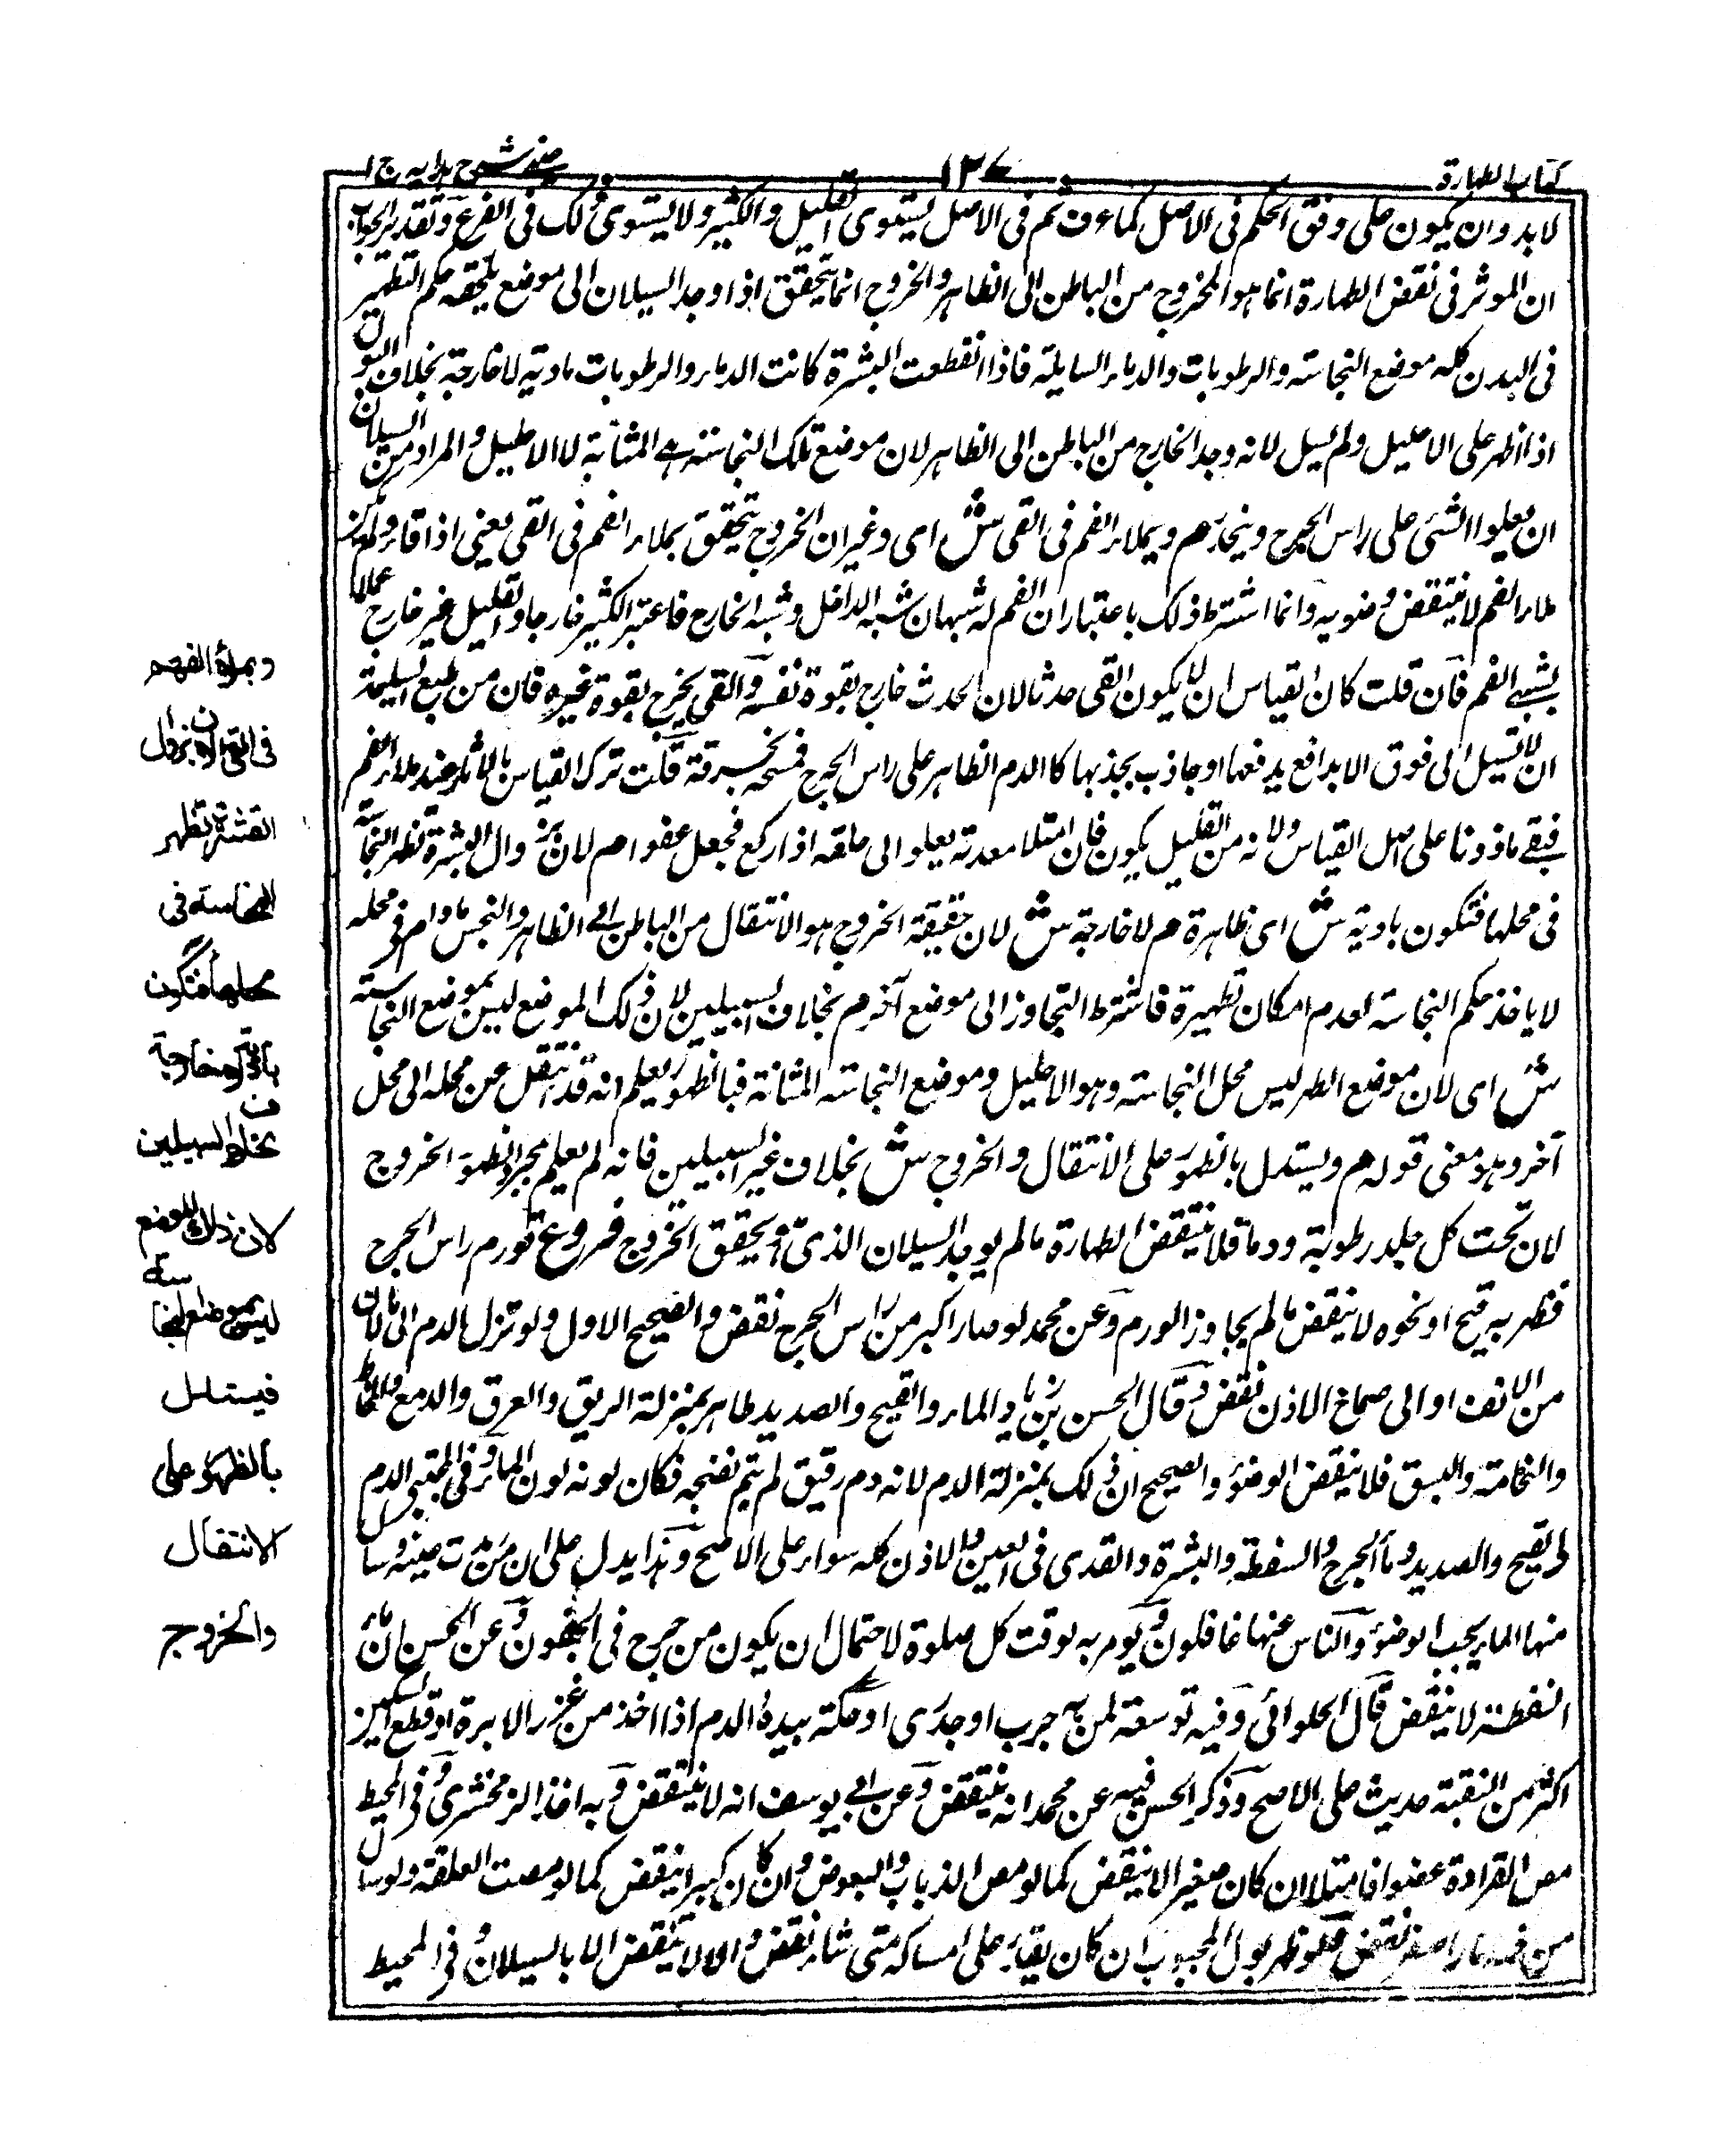 كتاب الطهارة
١٣٧
عينى شرح هدايه ج ١
لا بد وان يكون على وفق الحكم فى الاصل كما عرف ثم فى الاصل يستوى القليل والكثير ولا يستوى ذلك فى الفرع وتقدير الجواب
ان الموثر فى نقض الطهارة انما هو الخروج من الباطن الى الظاهر والخروج انما يتحقق اذا وجد السيلان الى موضع يلحقه حكم التطهير
فى البدن كله موضع النجاسة والرطوبات والدماء السايلة فاذا انقطعت البشرة كانت الدماء والرطوبات بادية لا خارجة بخلاف البول
اذا ظهر على الاحليل ولم يسل لانه وجد الخارج من الباطن الى الظاهر لان موضع تلك النجاسة هى المثانة لا الاحليل والمراد من السيلان
ان يعلوا الشئ على راس الجرح وينحدر م ويملاء الفم فى القى ش اى وغير ان الخروج يتحقق بملاء الفم فى القى يعنى اذا قاء ولم يكن
ملاء الفم لا ينتقض وضويه وانما اشترط ذلك باعتبار ان الفم له شبهان شبه الداخل وشبه الخارج فاعتبر الكثير خارجا والقليل غير خارج عملا
بشبهى الفم فان قلت كان القياس ان لا يكون القى حدثا لان الحدث خارج بقوة نفسه والقى يخرج بقوة غيره فان من طبع السليمة
ان لا تسيل الى فوق الا بدافع يدفعها او جاذب يجذبها كالدم الظاهر على راس الجرح فمسحه بخرقة قلت ترك القياس بالاثار عند ملاء الفم
فبقى ما دونها على اصل القياس ولانه من القليل يكون فان امتلا معدته يعلو الى حلقه اذا ركع فجعل عفوا م لان بزوال البشرة تظهر النجاسة
فى محلها فتكون بادية ش اى ظاهرة م لا خارجة ش لان حقيقة الخروج هو الانتقال من الباطن الى الظاهر والنجس ما دام فى محله
لا ياخذ حكم النجاسة لعدم امكان تطهيره فاشترط التجاوز الى موضع آخر م بخلاف السبيلين لان ذلك الموضع ليس بموضع النجاسة
ش اى لان موضع الطهر ليس محل النجاسة وهو الاحليل وموضع النجاسة المثانة فبالظهور يعلم انه قد انتقل عن محله الى محل
آخر وهو معنى قوله م ويستدل بالظهور على الانتقال والخروج ش بخلاف غير السبيلين فانه لم يعلم بمجرد الظهور الخروج
لان تحت كل جلد رطوبة ودما فلا ينتقض الطهارة ما لم يوجد السيلان الذى به يتحقق الخروج فروع تورم راس الجرح
فظهر به قيح او نحوه لا ينقض ما لم يجاوز الورم وعن محمد لو صار اكبر من راس الجرح نقض والصحيح الاول ولو نزل الدم الى ما لان
من الانف او الى صماخ الاذن نقض وقال الحسن بن زياد الماء والقيح والصديد طاهر بمنزلة الريق والعرق والدمع والمخاط
والنخامة والبسق فلا ينقض الوضوء والصحيح ان ذلك بمنزلة الدم لانه دم رقيق لم يتم نضجه فكان لونه لون الماء وفى المجتبى الدم
والقيح والصديد وماء الجرح والنفطة والبشرة والقدى فى العين والاذن كله سواء على الاصح وهذا يدل على ان من رمدت عينه وسال
منها الماء يجب الوضوء والناس عنها غافلون ويومر به لوقت كل صلوة لاحتمال ان يكون من جرح فى الجفون وعن الحسن ان ماء
النفطة لا ينقض قال الحلوائى وفيه توسعة لمن به جرب او جدرى او حكة بيده الدم اذا اخذ من غرز الابرة او قطع السكين
اكثر من النقبة حديث على الاصح وذكر الحسن فيه عن محمد انه ينتقض وعن ابى يوسف انه لا ينتقض وبه اخذ الزمخشرى وفى المحيط
مص القرادة عضوا فامتلا ان كان صغيرا لا ينقض كما لو مص الذباب والبعوض وان كان كبيرا ينقض كما لو مصت العلقة ولو سال
نقض ولو ظهر بول المجبوب ان كان يقدر على امساكه متى شاء نقض والا لا ينتقض الا بالسيلان وفى المحيط
وبملأ الفم
فى القى لان بزوال
القشرة تظهر
النجاسة فى
محلها فتكون
بادية لا خارجة
بخلاف السبيلين
لان ذلك الموضع
ليس بموضع النجاسة
فيستدل
بالظهور على
الانتقال
والخروج